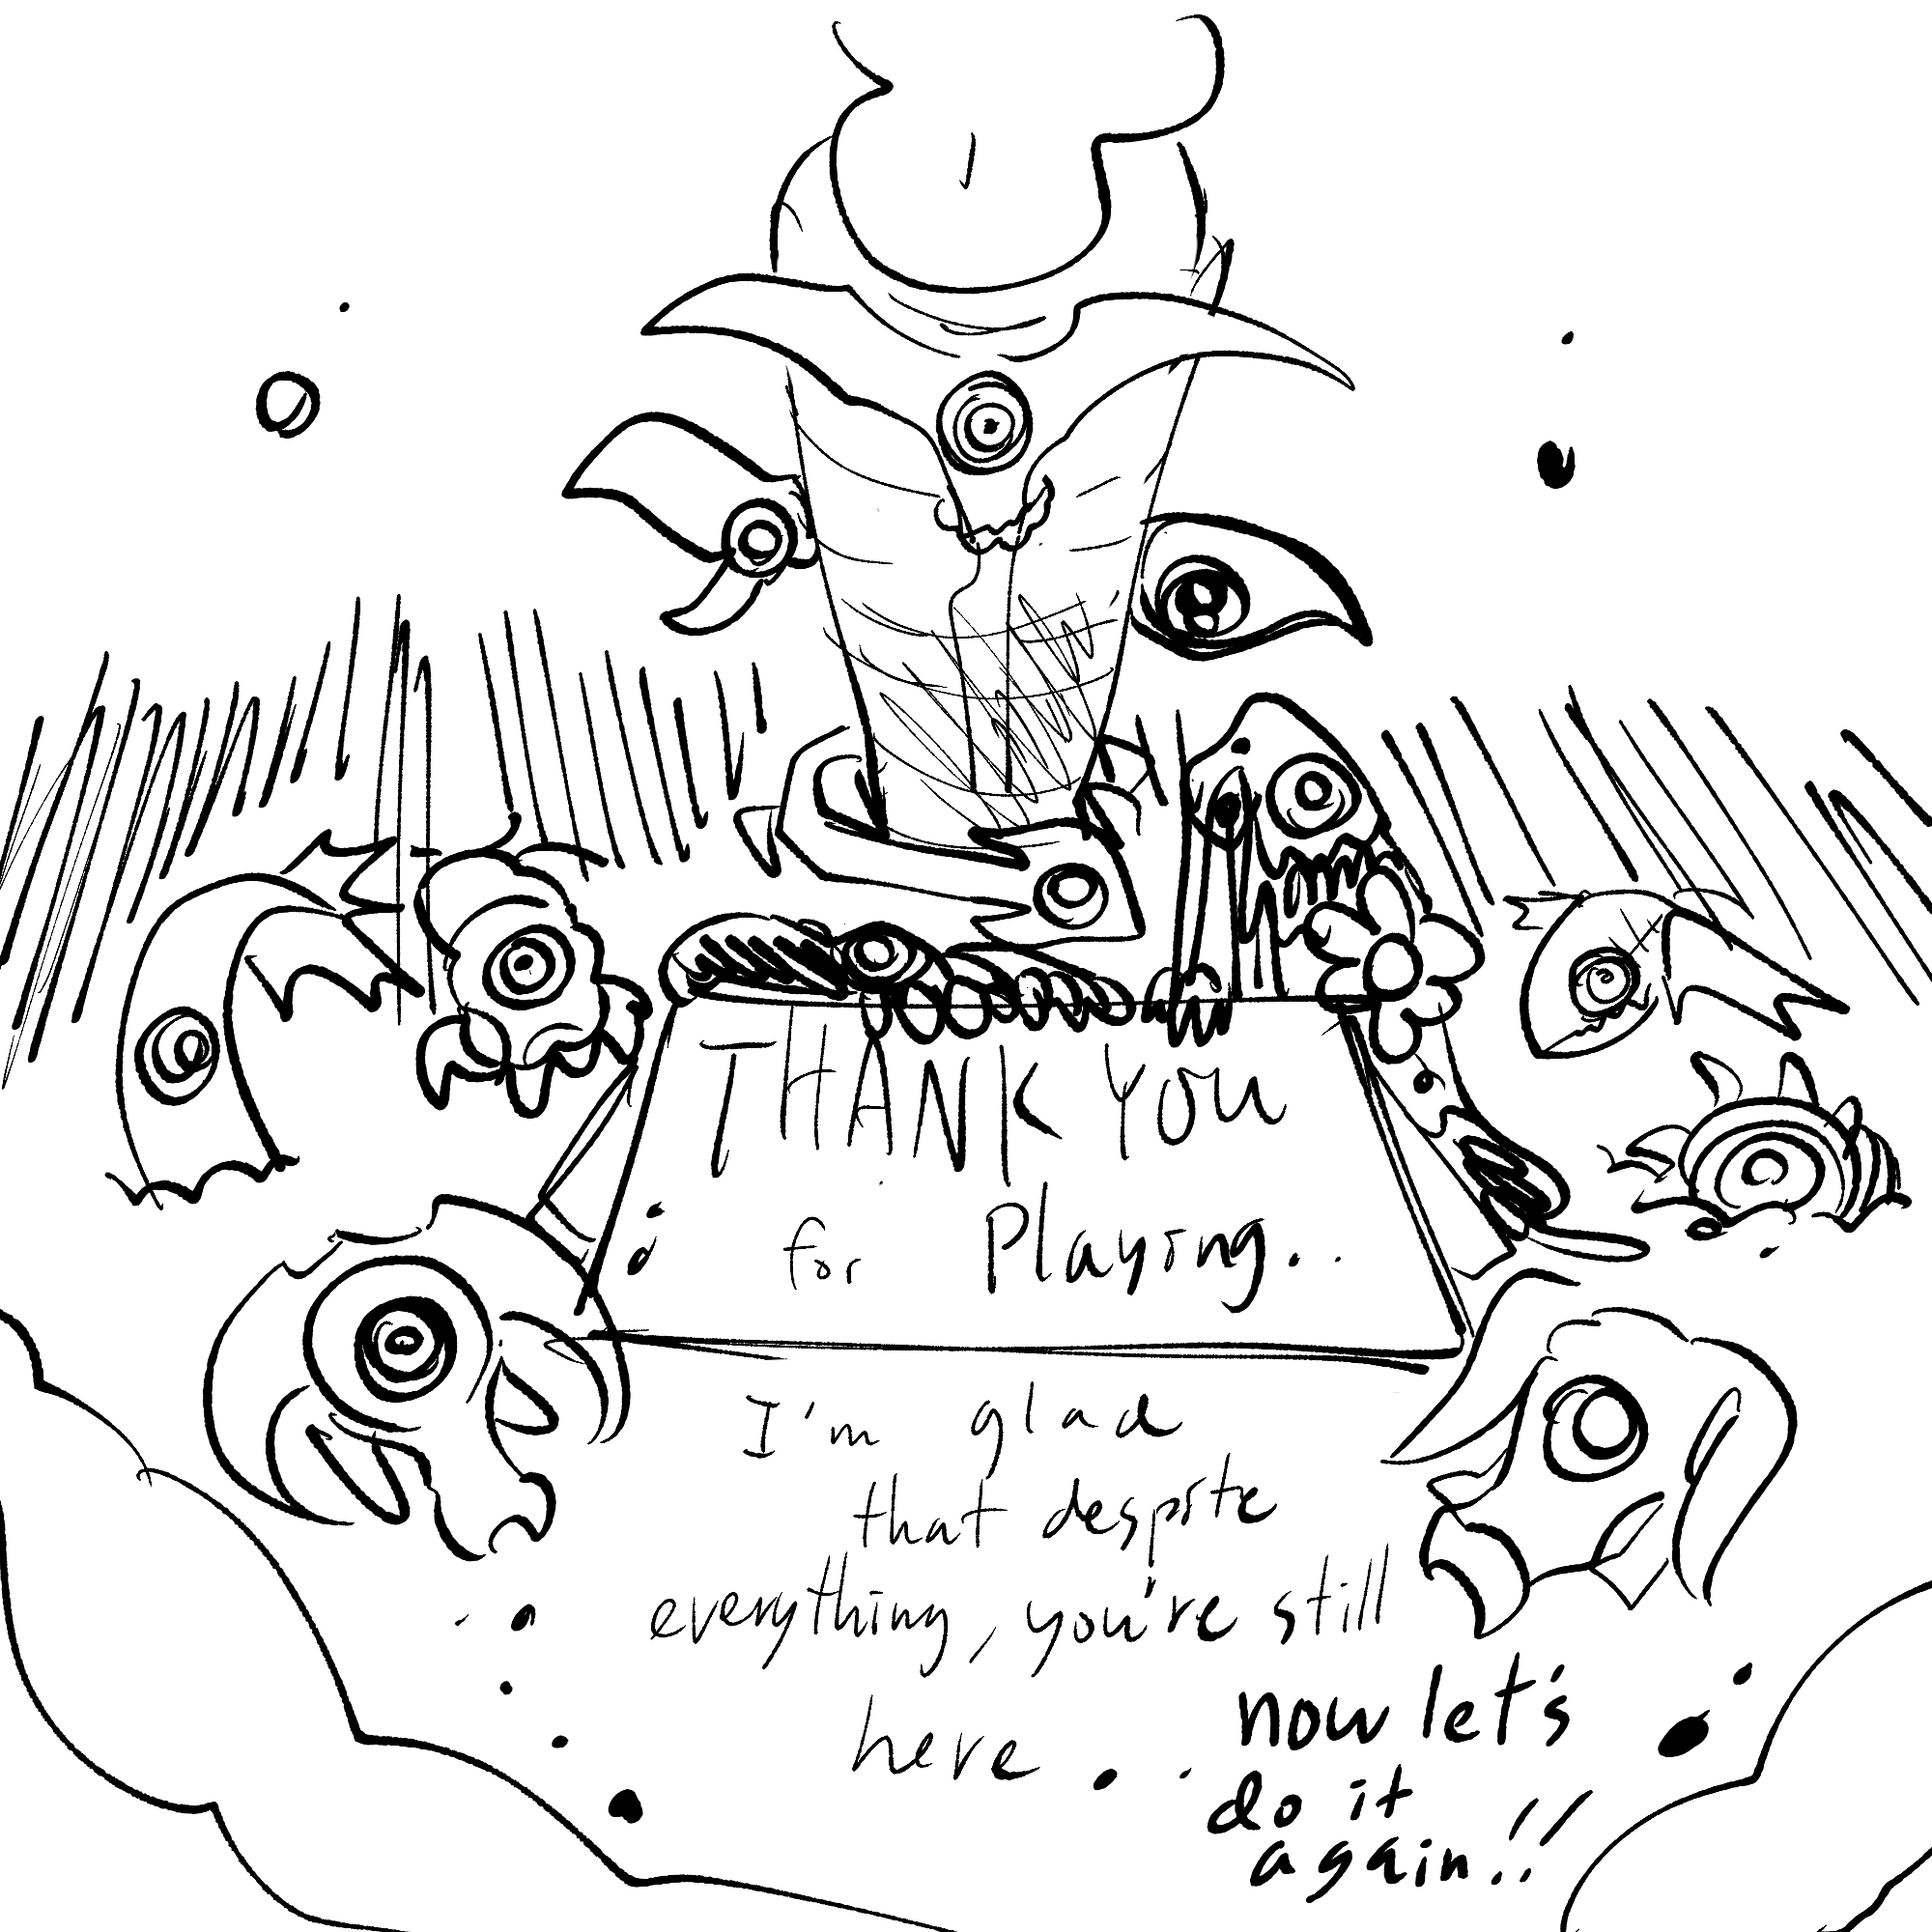 THANK YOU
for Playing..
I'm glad
that despite
everything, you're still
here..
now let's
do it
again!!